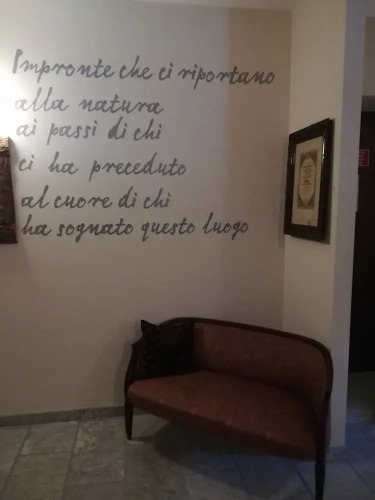 Impronte che ci riportano
alla natura
ai passi di chi
ci ha preceduto
al cuore di chi
ha sognato questo luogo